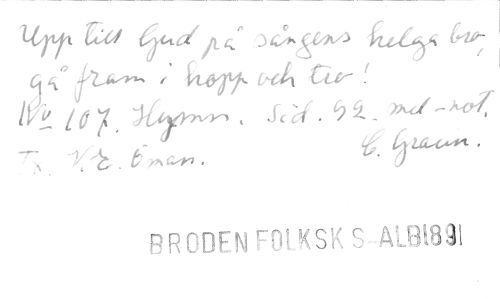 Upp till Gud på sångens helga bro,
gå fram i hopp och tro!
No 107. Hymn. Sid. 92. md-not.
Tx. V.E. Öman. C. Graun.
BRODEN FOLKSK S-ALB1891